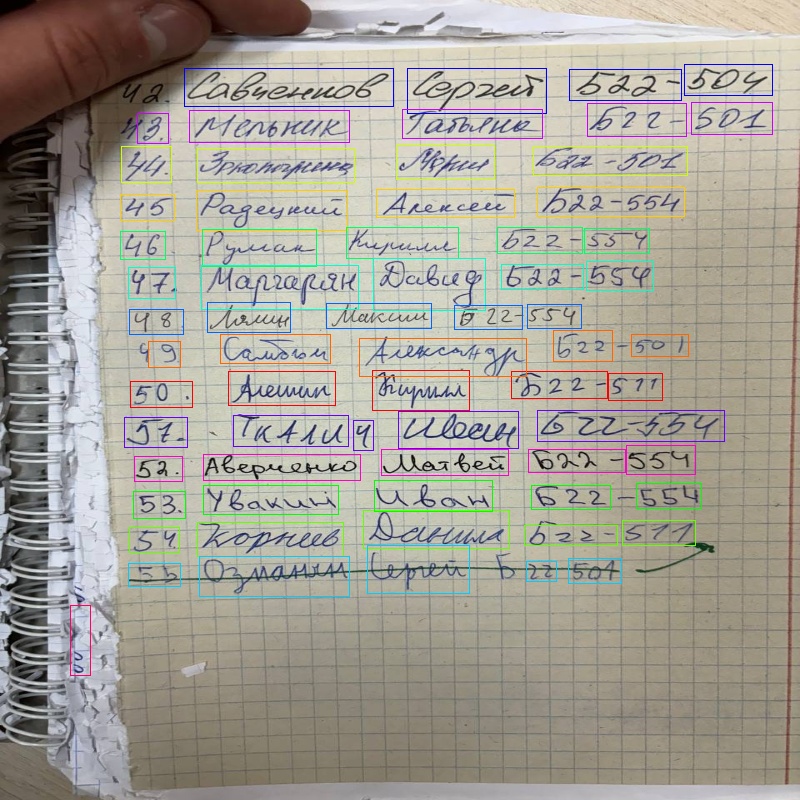 42. Савченков Сергей Б22-504
43. Мельник Татьяна Б22-501
44. Мария Б22-501
45 Радецкий Алексей Б22-554
46. Руман Кирилл Б22-554
47. Маргарян Давид Б22-554
48 Лямин Максим Б22-554
49 Самбом Александр Б22-501
50. Алешин Кирилл Б22-511
51. Ткалич Иван Б22-554
52. Аверченко Матвей Б22-554
53. Увакин Иван Б22-554
54. Корнев Данила Б22-511
55 Озманян Сергей Б22-504